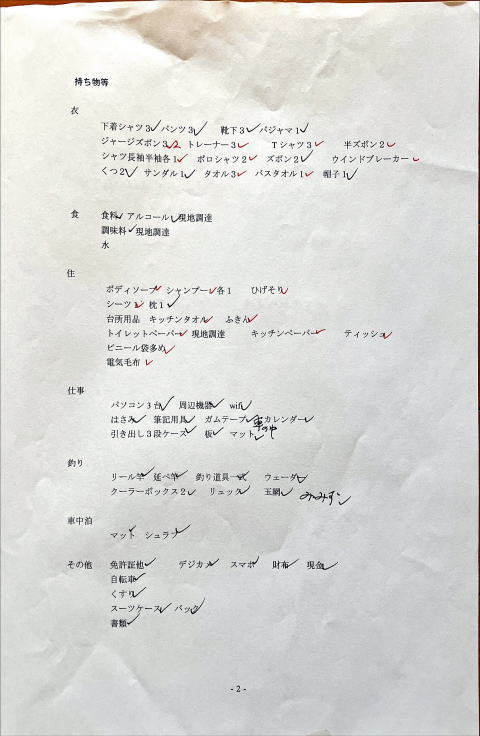 持ち物等
衣
下着シャツ3 パンツ3 靴下3 パジャマ1
ジャージズボン3 2 トレーナー3 Tシャツ3 半ズボン2
シャツ長袖半袖各1 ポロシャツ2 ズボン2 ウインドブレーカー
くつ2 サンダル1 タオル3 バスタオル1 帽子1
食 食料 アルコール 現地調達
調味料 現地調達
水
住
ボディソープ シャンプー 各1 ひげそり
シーツ1 枕1
台所用品 キッチンタオル ふきん
トイレットペーパー 現地調達 キッチンペーパー ティッシュ
ビニール袋多め
電気毛布
仕事
パソコン3台 周辺機器 wifi
はさみ 筆記用具 ガムテープ カレンダー
引き出し3段ケース 板 マット
釣り
リール竿 延べ竿 釣り道具一式 ウェーダ
クーラーボックス2 リュック 玉網 みみずン
車中泊
マット シュラフ
その他 免許証他 デジカメ スマホ 財布 現金
自転車
くすり
スーツケース バック
書類
- 2 -